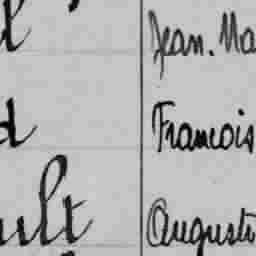 l Jean. Ma
d Francois
ult Auguste